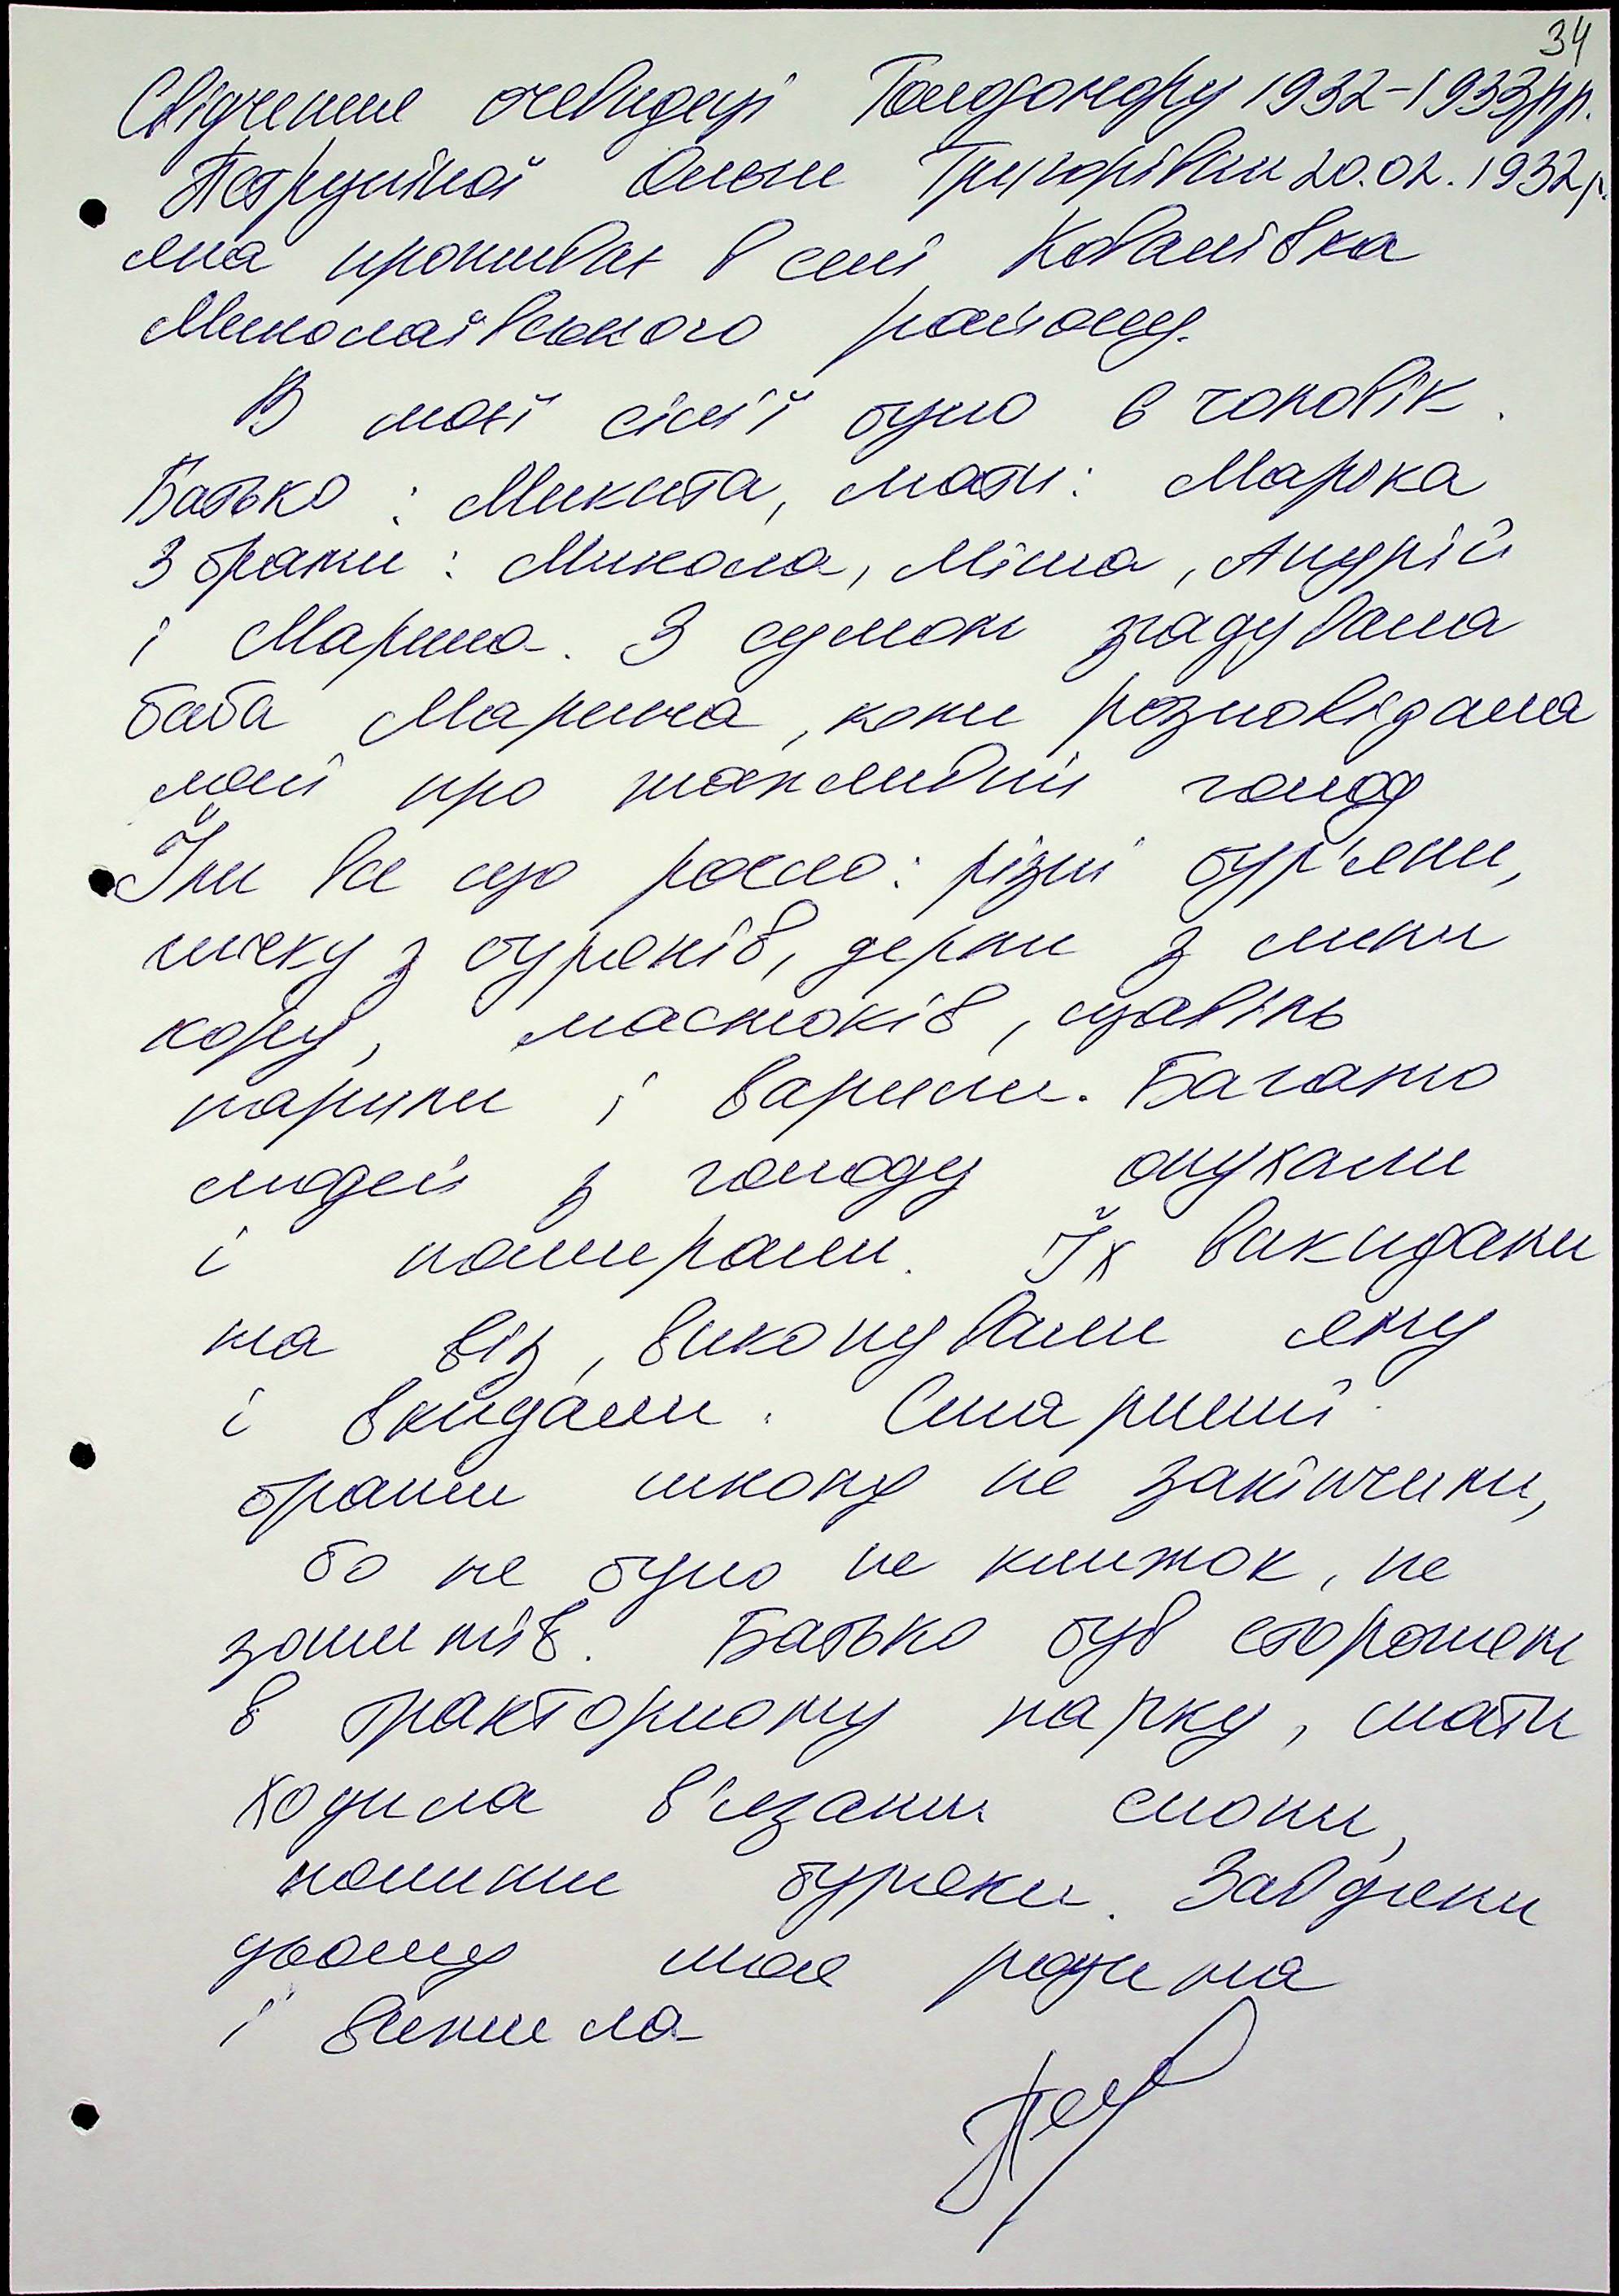 34
Свідчення очевидці Голодомору 1932-1933рр.
Петруніної Олени Григорівни 20.02.1932р.
яка проживає в селі Ковалівка
Миколаївського району.
В моєї сім'ї було 6 чоловік.
Батько : Микита, мати: Марфка
3 брати : Микола, Міша, Андрій
і Марина. З сумом згадувала
баба Марина, коли розповідала
мені про жахливий голод
Їли все що росло: різні бур'яни,
гичку з буряків, дерли з липи
кору, маслюків, щавель
парили і варили. Багато
людей з голоду опухали
і помирали. Їх викидали
на віз, викопували яму
і вкидали. Старший
брати школу не закінчили,
бо не було не книжок, не
зошитів. Батько був сторожем
в тракторному парку, мати
ходила в'язати снопи,
полити буряки. Завдяки
цьому моя родина
і вижила